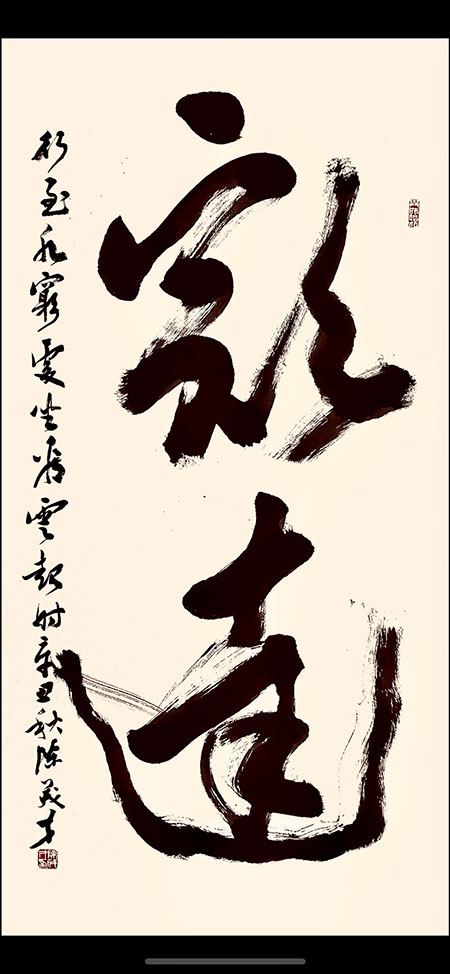 豁達
行至水窮處坐看雲起時辛丑秋陳義才